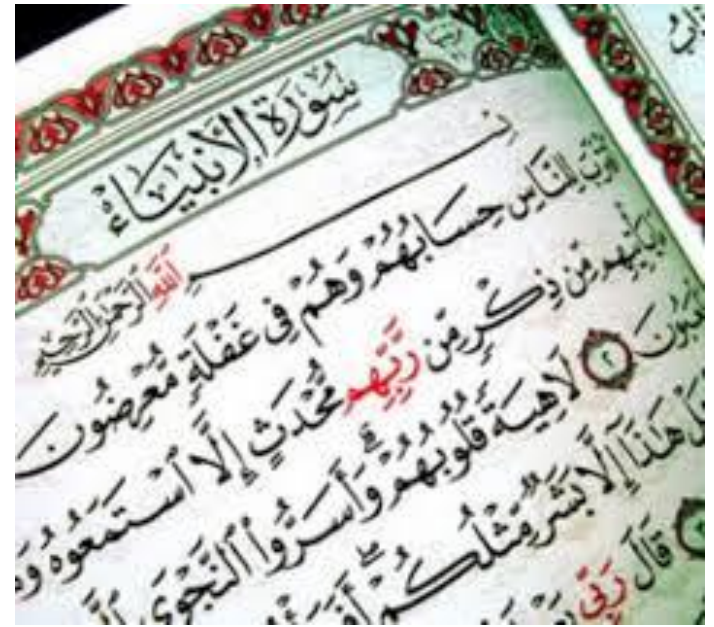 سُورَةُ الْأَنْبِيَاءِ
بِسْمِ اللَّهِ الرَّحْمَٰنِ الرَّحِيمِ
لِلنَّاسِ حِسَابُهُمْ وَهُمْ فِي غَفْلَةٍ مُّعْرِضُونَ
يَأْتِيهِم مِّن ذِكْرٍ مِّن رَّبِّهِم مُّحْدَثٍ إِلَّا اسْتَمَعُوهُ
٢ لَاهِيَةً قُلُوبُهُمْ ۗ وَأَسَرُّوا النَّجْوَى
هَٰذَا إِلَّا بَشَرٌ مِّثْلُكُمْ ۖ
قَالَ رَبِّي